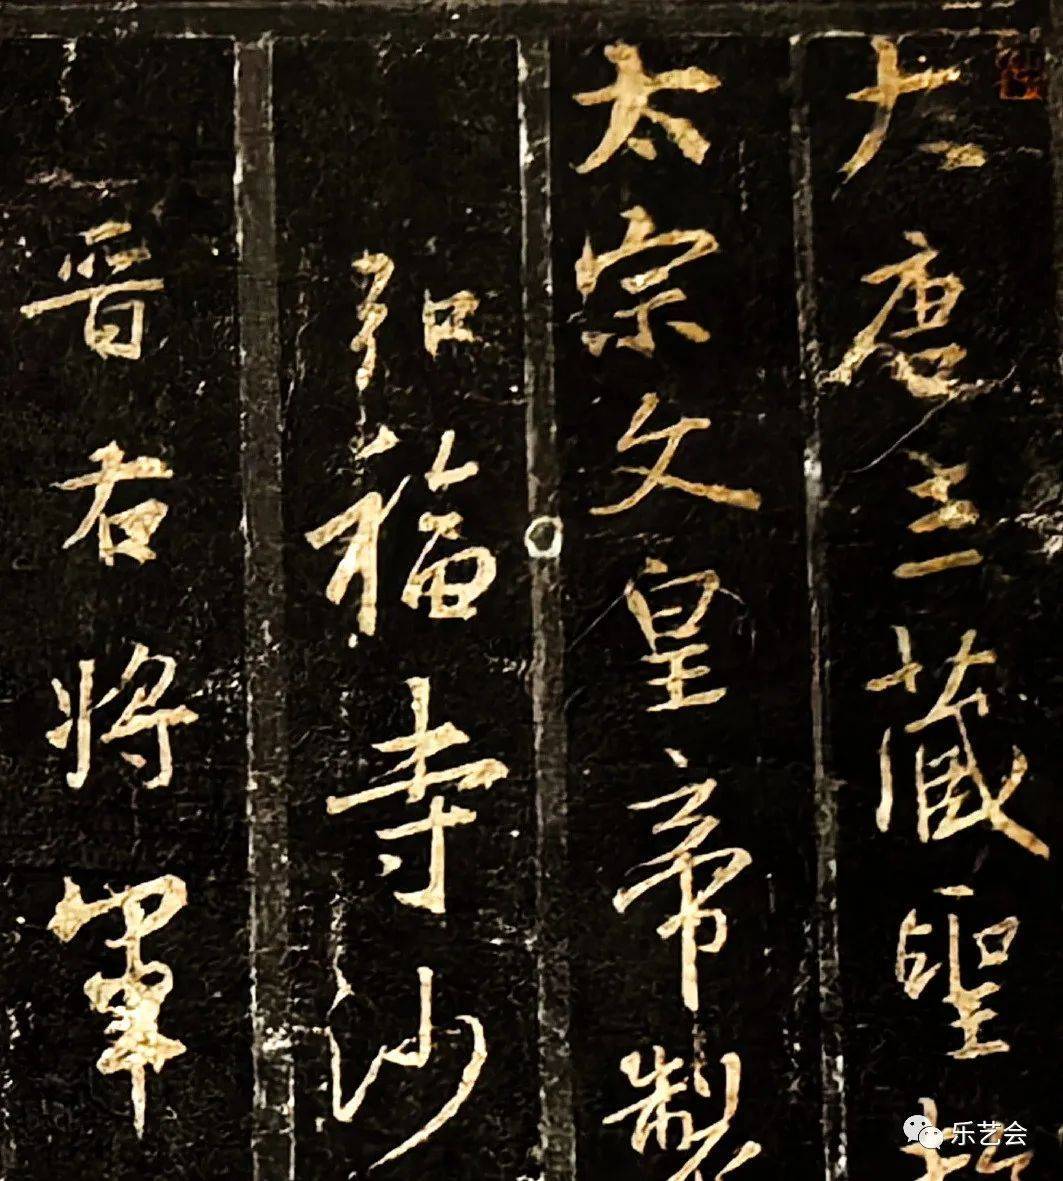 大唐三藏聖
太宗文皇帝製
弘福寺沙
晋右將軍
乐艺会